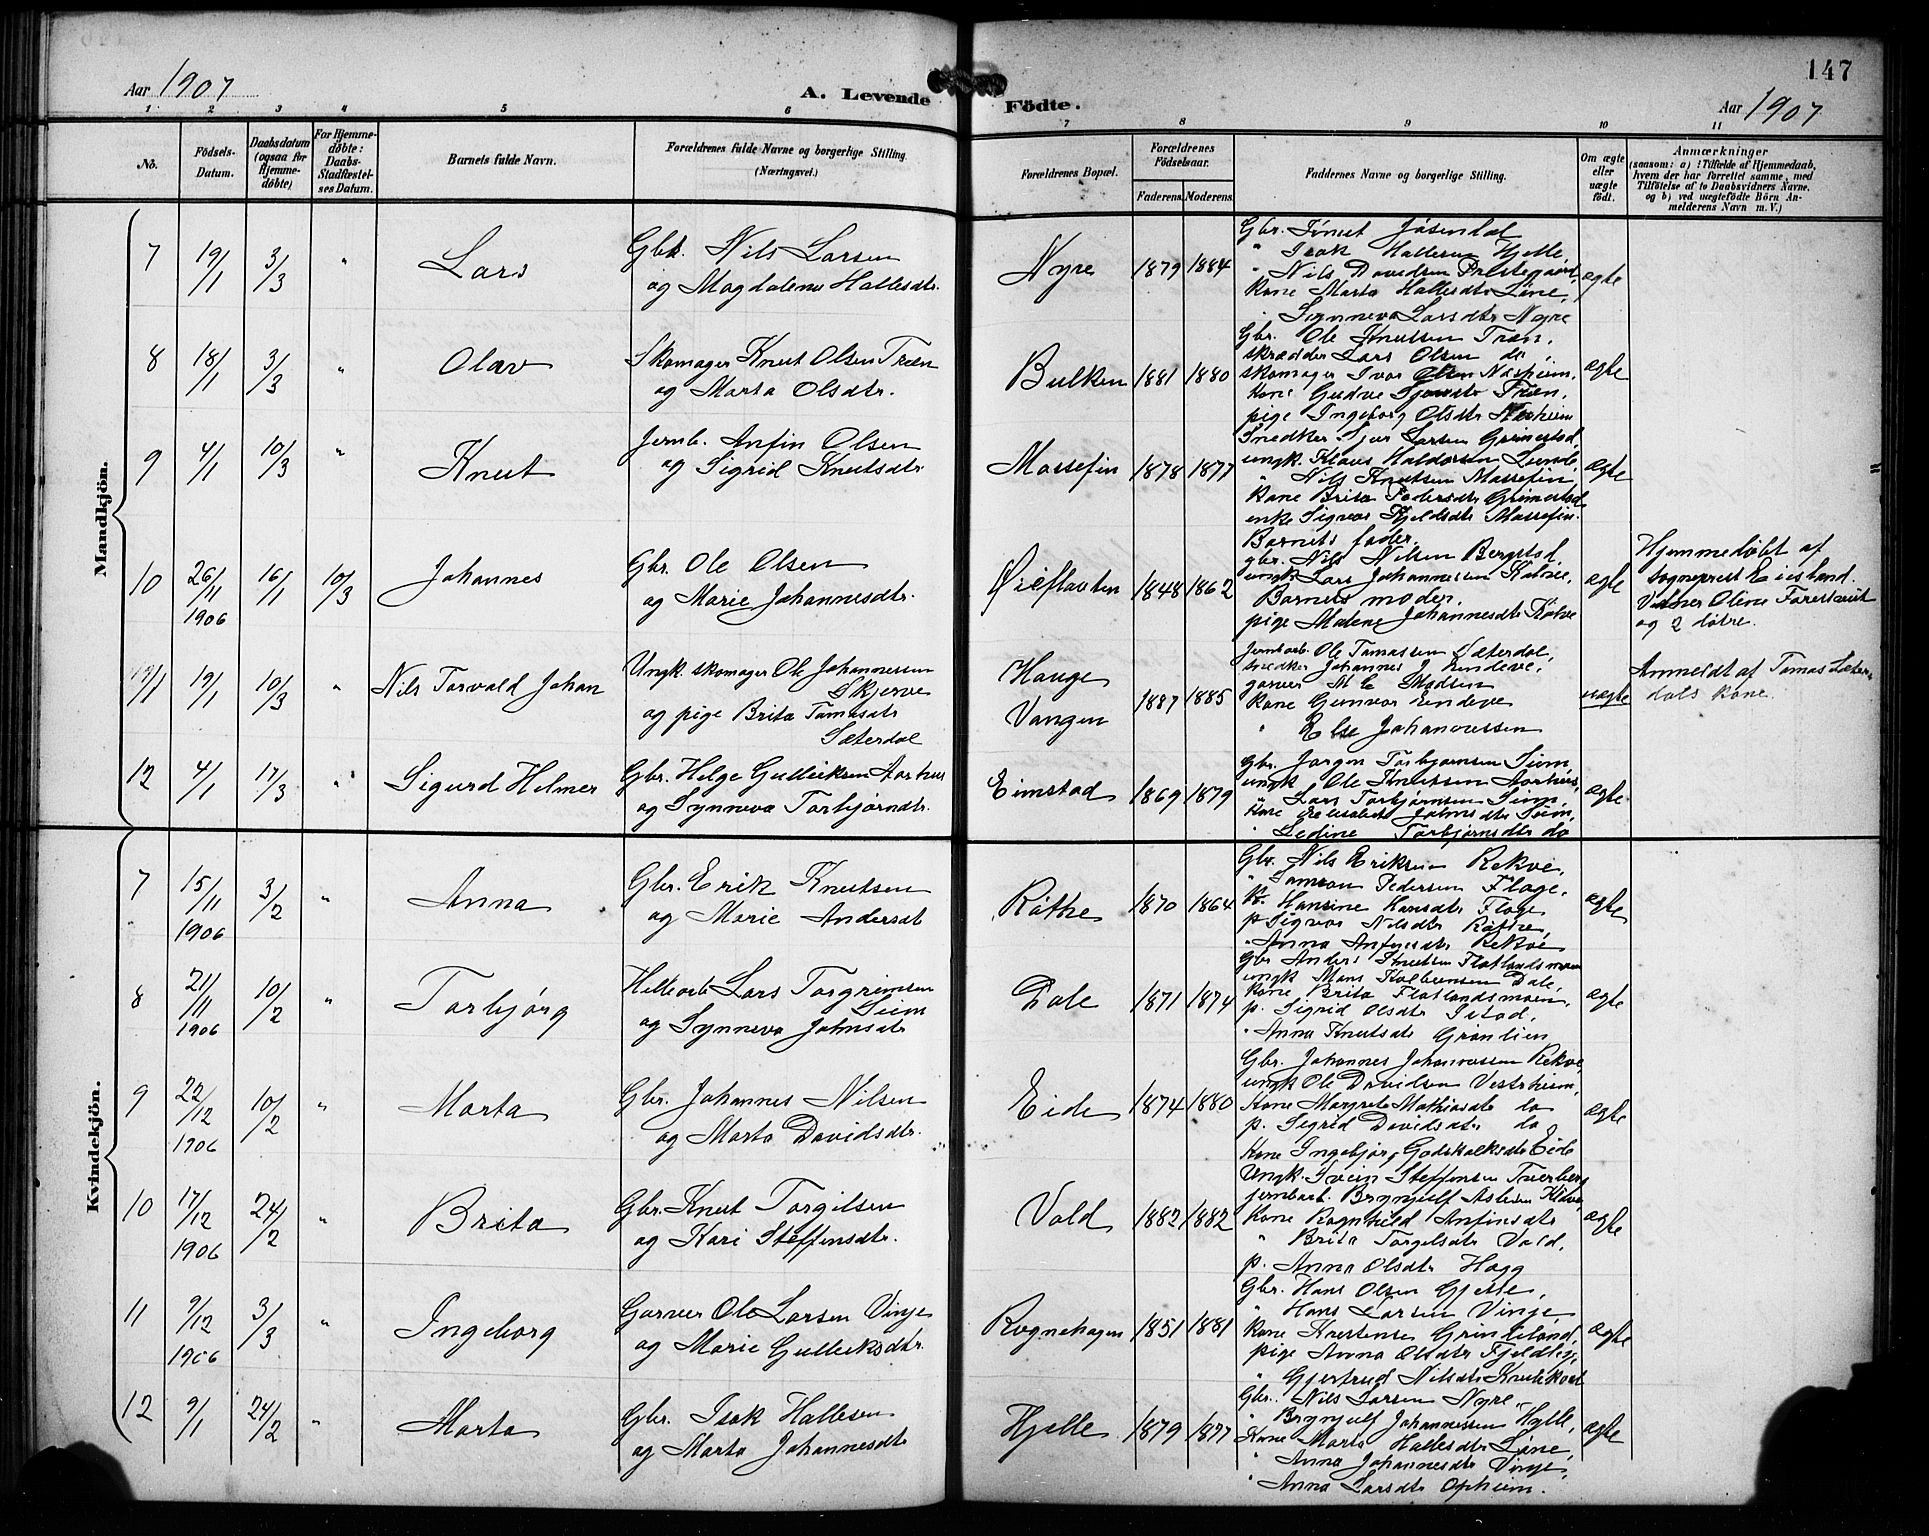 147
Aar 1907
A. Levende Födte.
Aar 1907
1 2 3 4 5 6 7 8 9 10 11
No.
Födsels-
Datum.
Daabsdatum
(ogsaa for
Hjemme-
döbte)
For Hjemme-
döbte:
Daabs-
Stadfæstel-
ses Datum.
Barnets fulde Navn.
Forældrenes fulde Navne og borgerlige Stilling
(Næringsvei.)
Forældrenes Bopæl.
Forældrenes
Födselsaar.
Faderens Moderens
Faddernes Navne og borgerlige Stilling.
Om ægte
eller
uægte
födt.
Anmærkninger
(saasom: a) i Tilfælde af Hjemmedaab,
hvem der har forrettet samme, med
Tilföielse af to Daabsvidners Navne,
og b) ved uægtefödte Börn An-
melderens Navn m. V.)
Mandkjön.
7 19/1 3/3 " Lars
Gbr. Nils Larsen
og Magdalena Hallesdtr.
Nyre 1879 1884
Gbr. Knut Jösendal
" Isak Hallesen Hjelle,
" Nils Davidsen Prestegaard,
Kone Marta Hallesdtr Löne,
" Synneva Larsdtr Nyre
ægte
8 18/1 3/3 " Olav
Skomager Knut Olsen Træen
og Marta Olsdtr.
Bulken 1881 1880
Gbr. Ole Knutsen Træn,
skrædder Lars Olsen do,
skomager Ivar Olsen Næsheim,
Kone Gudve Sjursdtr Træn,
pige Ingeborg Olsdtr Næsheim
ægte
9 4/1 10/3 " Knut
Jernb. Anfin Olsen
og Sigrid Knutsdtr
Massefin 1878 1877
Snedker Sjur Larsen Grimestad,
ungk. Klaus Haldorsen Lunde,
" Nils Knutsen Massefin,
Kone Brita Pedersdtr Grimestad
enke Sigvor Kjeldsdtr Massefin.
ægte
10 26/11 1906 16/1 10/3 Johannes
Gbr. Ole Olsen
og Marie Johannesdtr.
1848 1862
Barnets fader,
gbr. Nils Nilsen Bergstad,
ungk Lars Johannessen Kalve,
Barnets moder,
pige Malene Johannesdtr Kalve
ægte
Hjemmedöbt af
sogneprest Eiesland.
Vidner Oline
og 2 dötre.
19/1 10/3 " Nils Torvald Johan
Ungk. skomager Ole Johannessen
Skjerve
og pige Brita Tomasdtr
Sæterdal
Hauge
Vangen 1887 1885
Jernbarb. Ole Tomassen Sæterdal,
snedker Johannes J. Lindeve,
garver M E Madsen
Kone Gunvor Lindeve
" Else Johannessen
uægte
Anmeldt af Tomas Sæter-
dals kone.
12 4/1 17/3 " Sigurd Helmer
Gbr. Helge Gulleiksen Aarhus
og Synneva Torbjörnsdtr.
Eimstad 1869 1879
Gbr. Jörgen Torbjörnsen Seim,
ungk Ole Knutsen Aarhus,
" Lars Torbjörnsen Seim,
Kone Elisabet Johnsdtr Seim,
" Torbjörnsdtr do
ægte
Kvindekjön.
7 15/11 1906 3/2 " Anna
Gbr. Erik Knutsen
og Marie Andersdt
Röthe 1870 1864
Gbr. Nils Eriksen Rekve,
" Samson Pedersen Flage,
K. Hansine Hansdtr Flage
p. Sigvor Nilsdtr Röthe,
" Anna Anfinsdtr Rekve
ægte
8 21/11 1906 10/2 " Torbjörg
Helleorb Lars Torgrimsen
Seim
og Synneva Johnsdtr
Dale 1871 1874
Gbr Anders Knutsen Flatlandsmoen
ungk Mons Kolbeinsen Dale,
Kone Brita Flatlandsmoen,
p. Sigrid Olsdtr Istad,
" Anna Knutsdtr Grönlien
ægte
9 22/12 1906 10/2 " Marta
Gbr. Johannes Nilsen
og Marta Davidsdtr.
Eide 1874 1880
Gbr. Johannes Johannessen Rekve,
ungk Ole Davidsen Vestrheim,
Kone Margrete Mathiasdtr do
p. Sigrid Davidsdtr do
Kone Ingebjörg Godskalksdtr Eide
ægte
10 17/12 1906 24/2 " Brita
Gbr. Knut Torgilsen
og Kari Steffensdtr.
Vold 1882 1882
Ungk. Svein Steffensen Tverberg
jernbarb. Brynjulf Aslesen Kidve,
Kone Ragnhild Anfinsdtr
" Brita Torgelsdtr Vold,
p. Anna Olsdtr Hagg
ægte
11 9/12 1906 3/3 " Ingeborg
Garver Ole Larsen Vinje
og Marie Gulleiksdtr.
Rognehagen 1851 1881
Gbr. Hans Olsen Gjelle,
" Hans Larsen Vinje,
Kone Kristense Grimeland,
pige Anna Olsdtr Fjeldberg,
" Gjertrud Nilsdtr
ægte
12 9/1 24/2 " Marta
Gbr. Isak Hallesen
og Marta Johannesdtr
Hjelle 1879 1877
Gbr. Nils Larsen Nyre,
" Brynjulf Johannessen Hylle,
Kone Marta Hallesdtr Löne,
" Anna Johannesdtr Vinje,
" Anna Larsdtr Opheim.
ægte